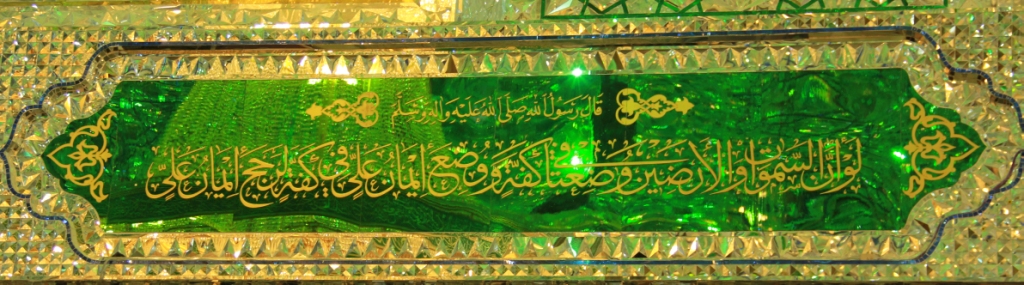 قال رسول الله صلى الله عليه وآله وسلم
لو أن السموات والأرضين وضعتا في كفة ووضع إيمان علي في كفة لرجح إيمان علي